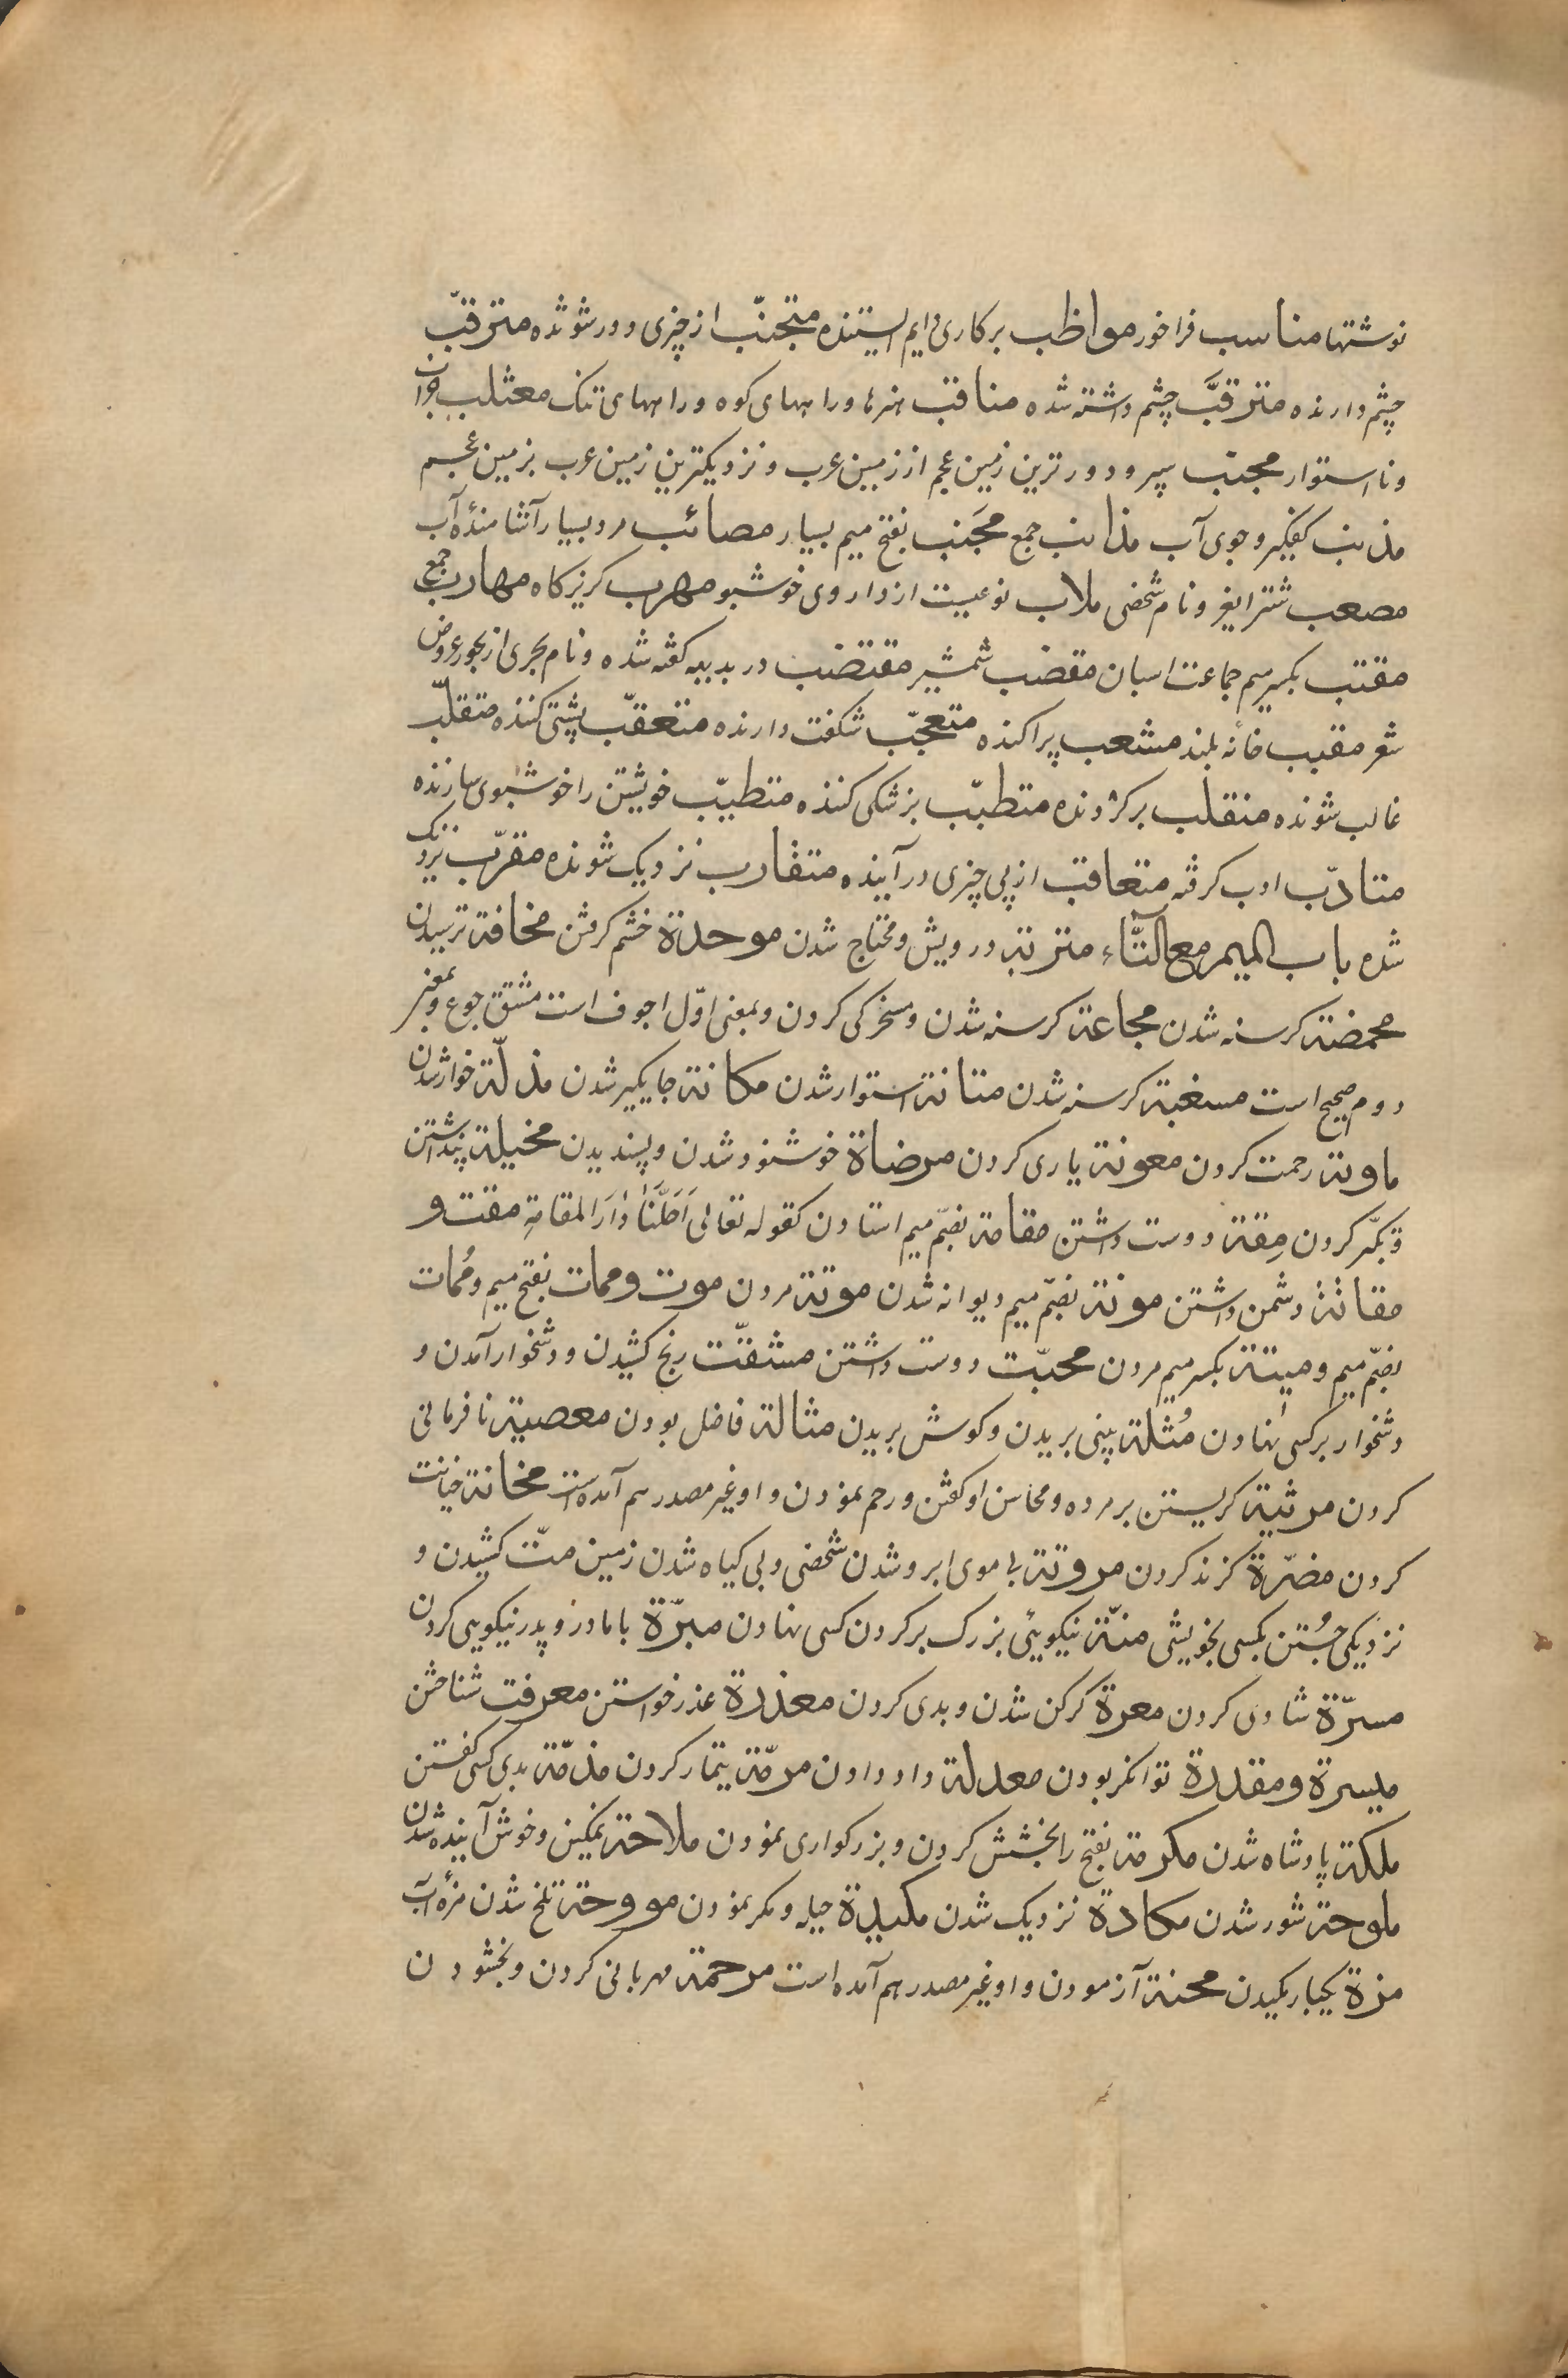 نوشتها مناسب فراخور مواظب بر کاری دایم ایستنده متجنّب از چیزی دور شونده مترقّب
چشم دارنده مترقَّب چشم داشته شده مناقب هنرها و راههای کوه و راههای تنک معثلب خراب
و نااستوار مجنب سپر و دورترین زمین عجم از زمین عرب و نزدیکترین زمین عرب بزمین عجم
مذنب کفگیر و جوی آب مذانب جمع مجَنب بفتح میم بسیار مصائب مرد بسیار آشامندهٔ آب
مصعب شتر ایغر و نام شخصی ملاب نوعیست از داروی خوشبو مهرب کریزکاه مهارب جمع
مقنب بکسر میم جماعت اسبان مقضب شمشیر مقتضب در بدیهه کفته شده و نام بحری از بحور عروض
شعر مقبب خانهٔ بلند مشعب پراکنده متعجّب شکفت دارنده متعقّب پشتی کننده متقلّب
غالب شونده منقلب برکردنده متطبّب بزشکی کننده متطیّب خویشتن را خوشبوی سازنده
متادّب ادب کرفته متعاقب از پی چیزی در آینده متقارب نزدیک شونده مقرّب نزدیک
شده باب المیم مع التّاء متربة درویش و محتاج شدن موحدة خشم کرفتن مخافة ترسیدن
مخمضة کرسنه شدن مجاعة کرسنه شدن و مسخرکی کردن و بمعنی اوّل اجوف است مشتق جوع و بمعنی
دوم صحیح است مسغبة کرسنه شدن متانة استوار شدن مکانة جایکیر شدن مذلّة خوار شدن
ماویة رحمت کردن معونة یاری کردن مرضاة خوشنود شدن و پسندیدن مخیلة پنداشتن
و تکبّر کردن مِقة دوست داشتن مقامة بضمّ میم استادن کقوله تعالی اَحَلَّنَا دَارَ المقامةِ مقت و
مقاتة دشمن داشتن موتة بضمّ میم دیوانه شدن موتة مردن موت و ممات بفتح میم و مُمات
بضمّ میم و میتة بکسر میم مردن محبّت دوست داشتن مشقّت رنج کشیدن و دشخوار آمدن و
دشخوار بر کسی نهادن مُثلة بینی بریدن و کوش بریدن مثالة فاضل بودن معصیة نافرمانی
کردن مرثیة کریستن بر مرده و محاسن او کفتن و رحم نمودن و او غیر مصدر هم آمده است مخانة خیانت
کردن مضرّة کزند کردن مروتة بی موی ابرو شدن شخصی و بی کیاه شدن زمین متّ کشیدن و
نزدیکی جُستن بکسی بخویشی منّة نیکویئی بزرک بر کردن کسی نهادن مبرّة با مادر و پدر نیکویی کردن
مسرّة شادی کردن معرة کرکن شدن و بدی کردن معذرة عذر خواستن معرفت شناختن
میسرة و مقدرة توانکر بودن معدلة داد دادن مرمّة تیمار کردن مذمّة بدی کسی کفتن
ملکة پادشاه شدن مکرمة بفتح را بخشش کردن و بزرکواری نمودن ملاحة نمکین و خوش آینده شدن
ملوحة شور شدن مکادة نزدیک شدن مکیدة حیله و مکر نمودن مووحة تلخ شدن مزهٔ آب
مزة یکبار مکیدن محنة آزمودن و او غیر مصدر هم آمده است مرحمة مهربانی کردن و بخشودن